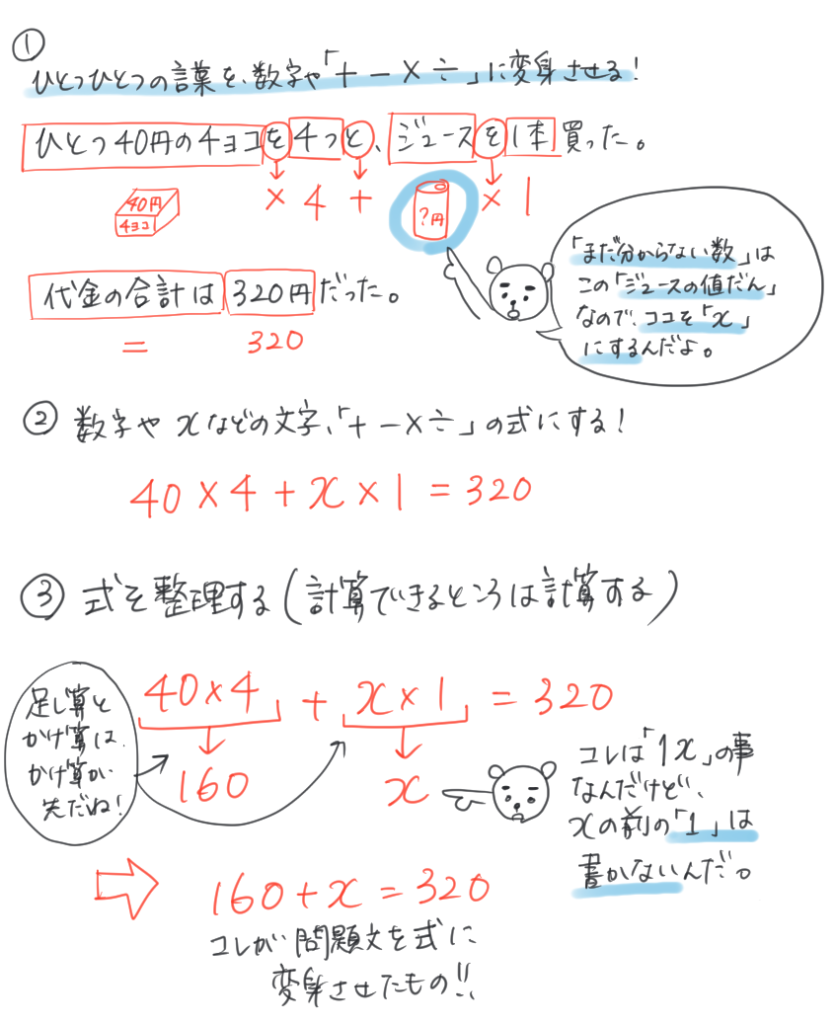 ①
ひとつひとつの言葉を、数字や「+ − × ÷」に変身させる!
ひとつ40円のチョコを4つと、ジュースを1本買った。
× 4 + ?円 × 1
40円
チョコ
代金の合計は320円だった。
= 320
「まだ分からない数」は
この「ジュースの値だん」
なので、ココを「x」
にするんだよ。
② 数字やxなどの文字、「+ − × ÷」の式にする!
40 × 4 + x × 1 = 320
③ 式を整理する(計算できるところは計算する)
足し算と
かけ算は
かけ算が
先だね!
40×4 + x×1 = 320
160 x
コレは「1x」の事
なんだけど、
xの前の「1」は
書かないんだ。
160+x=320
コレが問題文を式に
変身させたもの!!